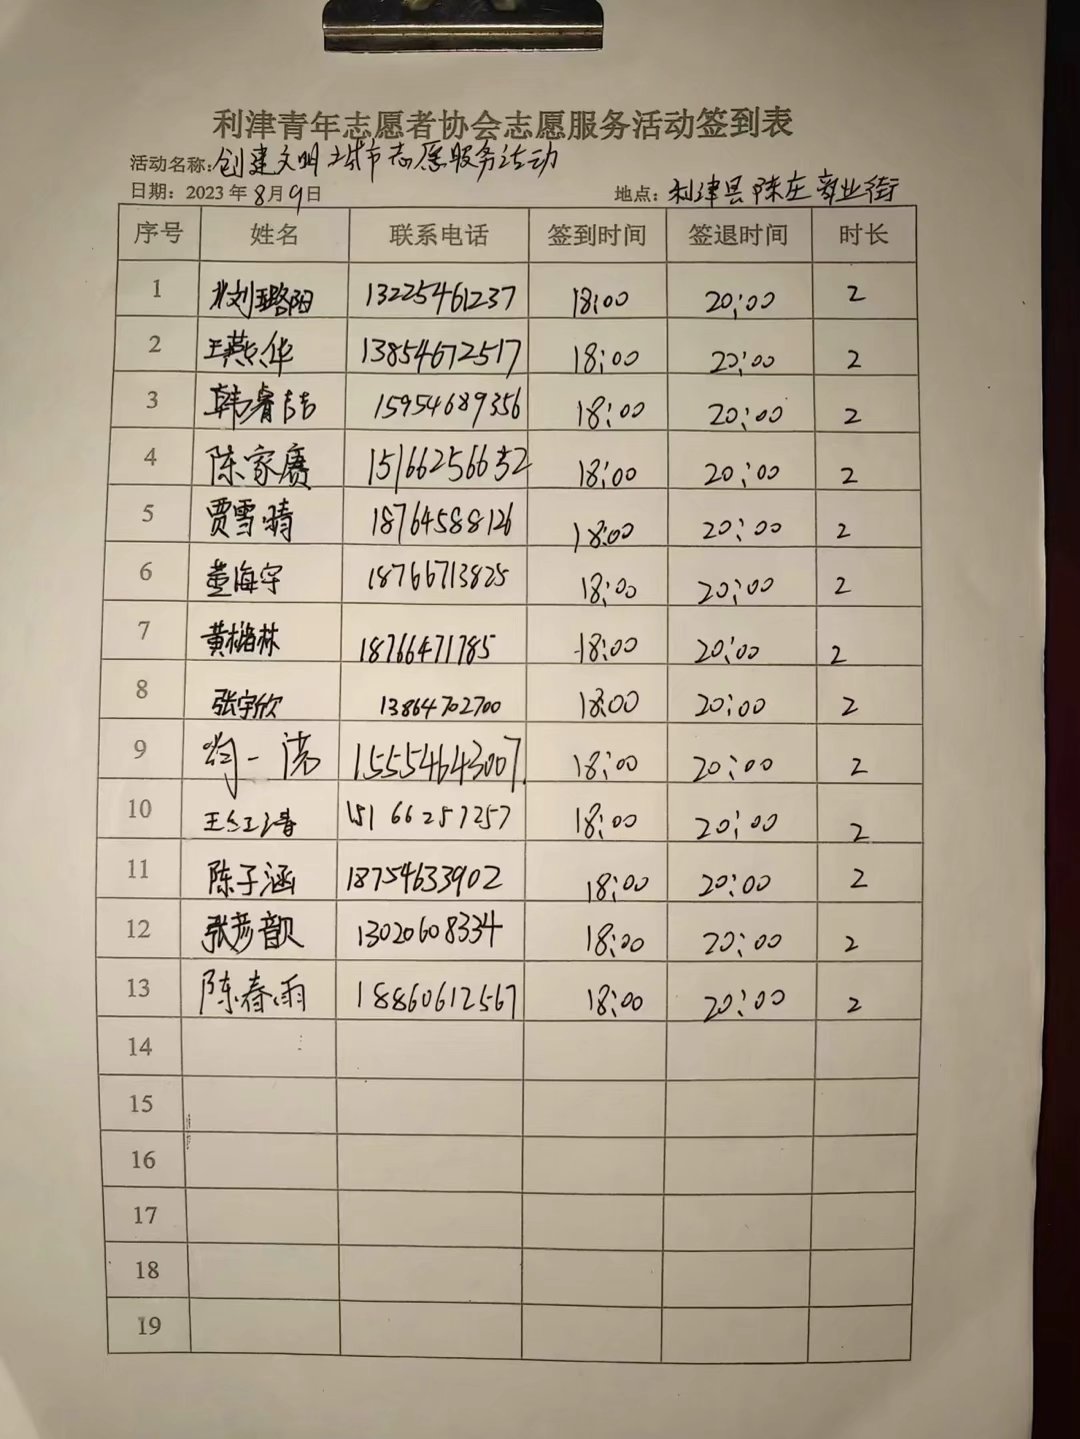 利津青年志愿者协会志愿服务活动签到表
活动名称:创建文明城市志愿服务活动
日期：2023年8月9日 地点：利津县陈庄商业街
序号 姓名 联系电话 签到时间 签退时间 时长
1 刘璐阳 13225461237 18:00 20:00 2
2 王燕华 13854672517 18:00 20:00 2
3 韩睿喆 15954689356 18:00 20:00 2
4 陈家赓 15166256632 18:00 20:00 2
5 贾雪晴 18764588126 18:00 20:00 2
6 董海宇 18766713825 18:00 20:00 2
7 黄梅林 18766471785 18:00 20:00 2
8 张宇欣 13864702700 18:00 20:00 2
9 15554643007 18:00 20:00 2
10 王红清 15166257257 18:00 20:00 2
11 陈子涵 18754633902 18:00 20:00 2
12 张彦歆 13020608334 18:00 20:00 2
13 陈春雨 18860612567 18:00 20:00 2
14
15
16
17
18
19